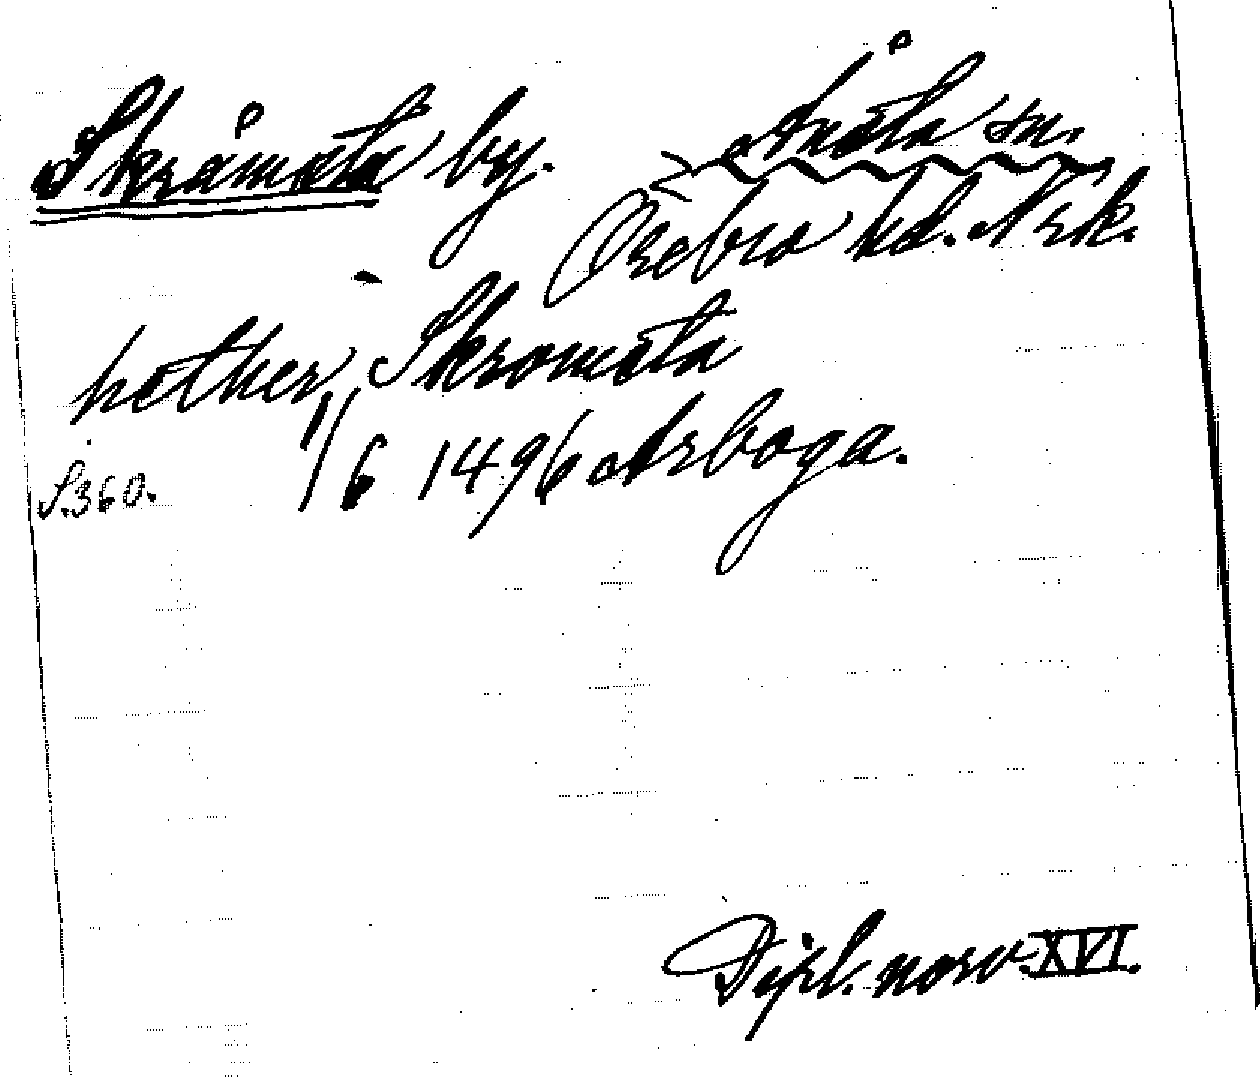 Skråmsta by. Ånsta sn.
Örebro hd. Nrk.
hether Skromsta
S. 360. 1/6 1496 Arboga.
Dipl. norv. XVI.